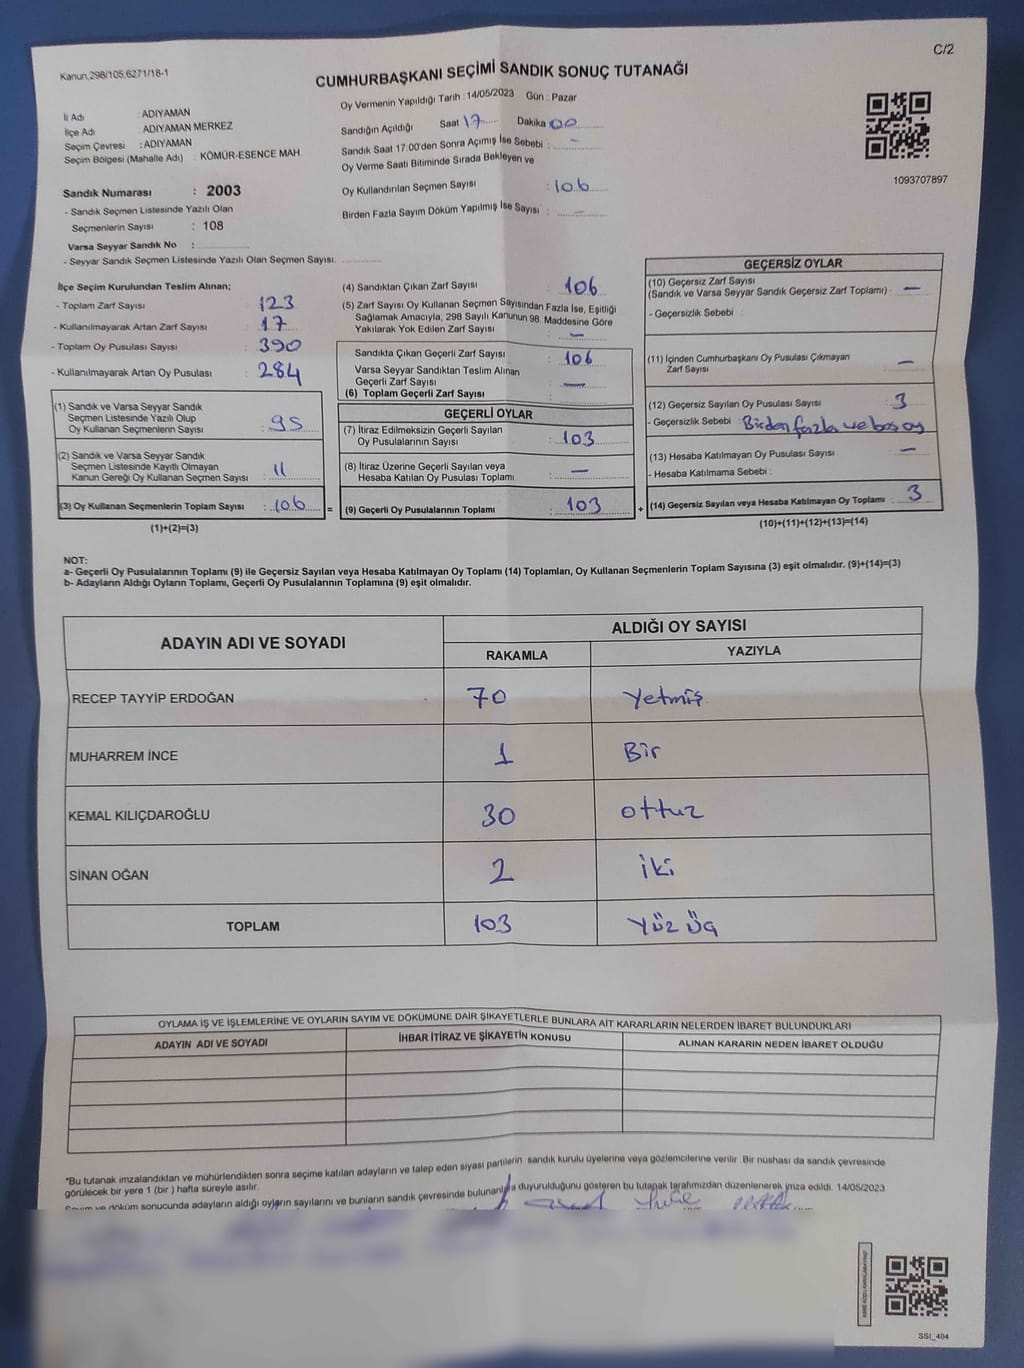 C/2
Kanun.298/105,6271/18-1
CUMHURBAŞKANI SEÇİMİ SANDIK SONUÇ TUTANAĞI
İl Adı : ADIYAMAN
İlçe Adı : ADIYAMAN MERKEZ
Seçim Çevresi : ADIYAMAN
Seçim Bölgesi (Mahalle Adı) : KÖMÜR-ESENCE MAH.
Sandık Numarası : 2003
- Sandık Seçmen Listesinde Yazılı Olan
Seçmenlerin Sayısı : 108
Varsa Seyyar Sandık No :
- Seyyar Sandık Seçmen Listesinde Yazılı Olan Seçmen Sayısı:
Oy Vermenin Yapıldığı Tarih : 14/05/2023 Gün : Pazar
Sandığın Açıldığı Saat 17 Dakika 00
Sandık Saat 17.00'den Sonra Açımış İse Sebebi : -
Oy Verme Saati Bitiminde Sırada Bekleyen ve
Oy Kullandırılan Seçmen Sayısı : 106
Birden Fazla Sayım Döküm Yapılmış İse Sayısı : -
1093707897
İlçe Seçim Kurulundan Teslim Alınan;
- Toplam Zarf Sayısı : 123
- Kullanılmayarak Artan Zarf Sayısı : 17
- Toplam Oy Pusulası Sayısı : 390
- Kullanılmayarak Artan Oy Pusulası : 284
(1) Sandık ve Varsa Seyyar Sandık
Seçmen Listesinde Yazılı Olup
Oy Kullanan Seçmenlerin Sayısı : 95
(2) Sandık ve Varsa Seyyar Sandık
Seçmen Listesinde Kayıtlı Olmayan
Kanun Gereği Oy Kullanan Seçmen Sayısı : 11
(3) Oy Kullanan Seçmenlerin Toplam Sayısı : 106 =
(1)+(2)=(3)
(4) Sandıktan Çıkan Zarf Sayısı : 106
(5) Zarf Sayısı Oy Kullanan Seçmen Sayısından Fazla İse, Eşitliği
Sağlamak Amacıyla; 298 Sayılı Kanunun 98. Maddesine Göre
Yakılarak Yok Edilen Zarf Sayısı : -
Sandıkta Çıkan Geçerli Zarf Sayısı : 106
Varsa Seyyar Sandıktan Teslim Alınan
Geçerli Zarf Sayısı : -
(6) Toplam Geçerli Zarf Sayısı :
GEÇERLİ OYLAR
(7) İtiraz Edilmeksizin Geçerli Sayılan
Oy Pusulalarının Sayısı : 103
(8) İtiraz Üzerine Geçerli Sayılan veya
Hesaba Katılan Oy Pusulası Toplamı : -
(9) Geçerli Oy Pusulalarının Toplamı : 103 +
GEÇERSİZ OYLAR
(10) Geçersiz Zarf Sayısı
(Sandık ve Varsa Seyyar Sandık Geçersiz Zarf Toplamı) : -
- Geçersizlik Sebebi :
(11) İçinden Cumhurbaşkanı Oy Pusulası Çıkmayan
Zarf Sayısı : -
(12) Geçersiz Sayılan Oy Pusulası Sayısı : 3
- Geçersizlik Sebebi : Birden fazla ve boş oy
(13) Hesaba Katılmayan Oy Pusulası Sayısı : -
- Hesaba Katılmama Sebebi :
(14) Geçersiz Sayılan veya Hesaba Katılmayan Oy Toplamı : 3
(10)+(11)+(12)+(13)=(14)
NOT:
a- Geçerli Oy Pusulalarının Toplamı (9) ile Geçersiz Sayılan veya Hesaba Katılmayan Oy Toplamı (14) Toplamları, Oy Kullanan Seçmenlerin Toplam Sayısına (3) eşit olmalıdır. (9)+(14)=(3)
b- Adayların Aldığı Oyların Toplamı, Geçerli Oy Pusulalarının Toplamına (9) eşit olmalıdır.
ADAYIN ADI VE SOYADI ALDIĞI OY SAYISI
RAKAMLA YAZIYLA
RECEP TAYYİP ERDOĞAN 70 Yetmiş
MUHARREM İNCE 1 Bir
KEMAL KILIÇDAROĞLU 30 ottuz
SİNAN OĞAN 2 iki
TOPLAM 103 Yüz üç
OYLAMA İŞ VE İŞLEMLERİNE VE OYLARIN SAYIM VE DÖKÜMÜNE DAİR ŞİKAYETLERLE BUNLARA AİT KARARLARIN NELERDEN İBARET BULUNDUKLARI
ADAYIN ADI VE SOYADI İHBAR İTİRAZ VE ŞİKAYETİN KONUSU ALINAN KARARIN NEDEN İBARET OLDUĞU
*Bu tutanak imzalandıktan ve mühürlendikten sonra seçime katılan adayların ve talep eden siyasi partilerin sandık kurulu üyelerine veya gözlemcilerine verilir. Bir nüshası da sandık çevresinde
görülecek bir yere 1 (bir ) hafta süreyle asılır.
Sayım ve döküm sonucunda adayların aldığı oyların sayılarını ve bunların sandık çevresinde bulunanlara duyurulduğunu gösteren bu tutanak tarafımızdan düzenlenerek imza edildi. 14/05/2023
SSI_404